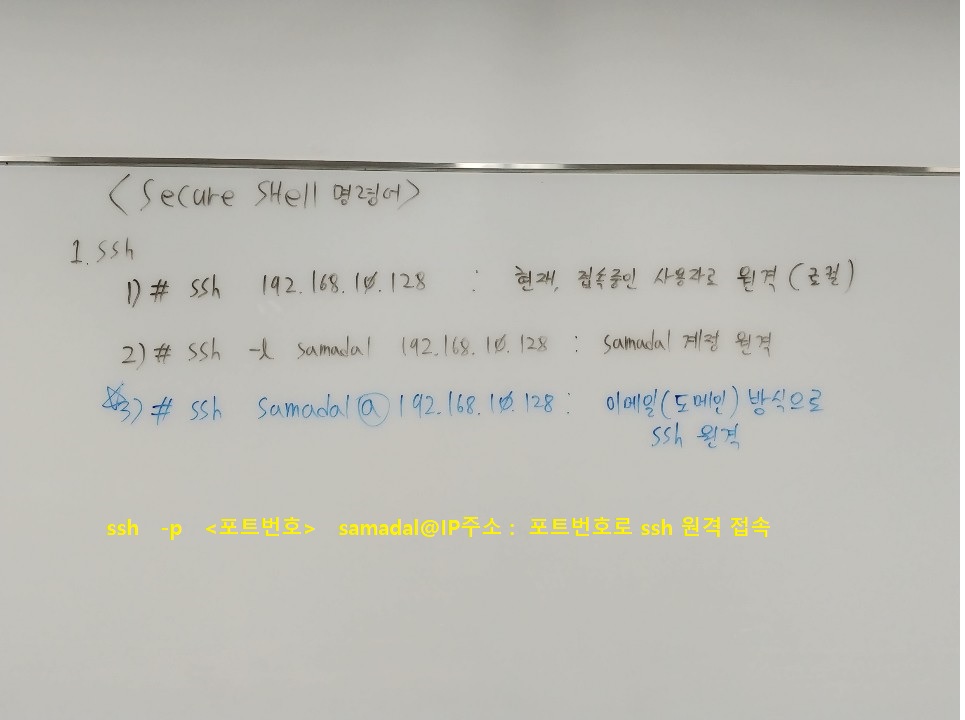 <Secure SHell 명령어>
1. ssh
1) # ssh 192.168.10.128 : 현재, 접속중인 사용자로 원격 (로컬)
2) # ssh -l samadal 192.168.10.128 : samadal 계정 원격
☆3) # ssh samadal@192.168.10.128 : 이메일(도메인) 방식으로
ssh 원격
ssh -p <포트번호> samadal@IP주소 : 포트번호로 ssh 원격 접속